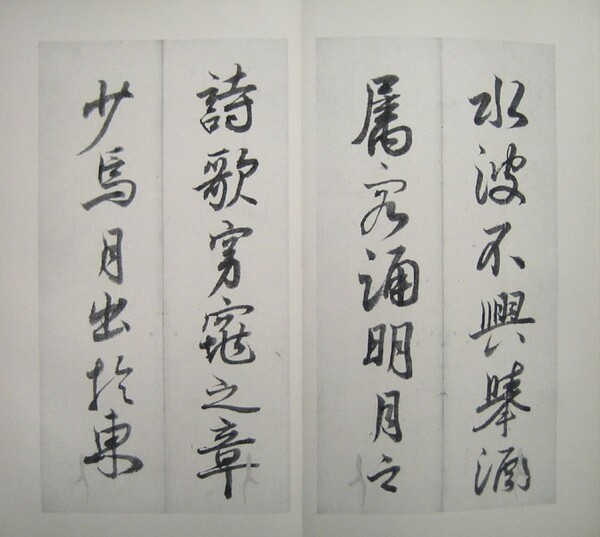 水波不興舉酒
属客誦明月之
詩歌窈窕之章
少焉月出於東